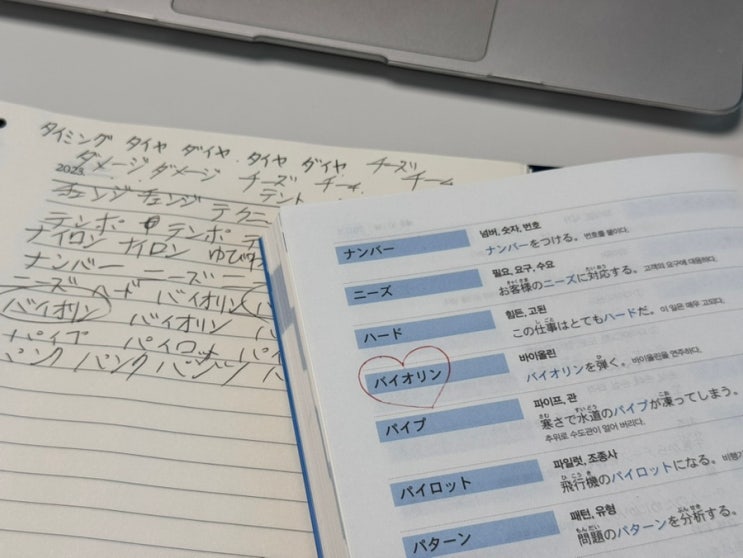 タイミング タイヤ ダイヤ、タイヤ ダイヤ、チーズ
ダメージ、ダメージ チーズ チーム チーム
2023.
チェンジ チェンジ テクニ
テント
テンポ テンポ テ
ナイロン ナイロン ゆびわ
ナンバー ニーズ ニーズ
ニーズ ハード バイオリン
バイオリン バイオリン バ
パイプ パイロット パイ
パンク パンク
ナンバー
넘버, 숫자, 번호
ナンバーをつける。번호를 붙이다.
ニーズ
필요, 요구, 수요
お客様のニーズに対応する。고객의 요구에 대응하다.
ハード
힘든, 고된
この仕事はとてもハードだ。이 일은 매우 고되다.
バイオリン
바이올린
バイオリンを弾く。바이올린을 연주하다.
パイプ
파이프, 관
寒さで水道のパイプが凍ってしまう。
추위로 수도관이 얼어 버리다.
パイロット
파일럿, 조종사
飛行機のパイロットになる。비행기
パターン
패턴, 유형
問題のパターンを分析する。